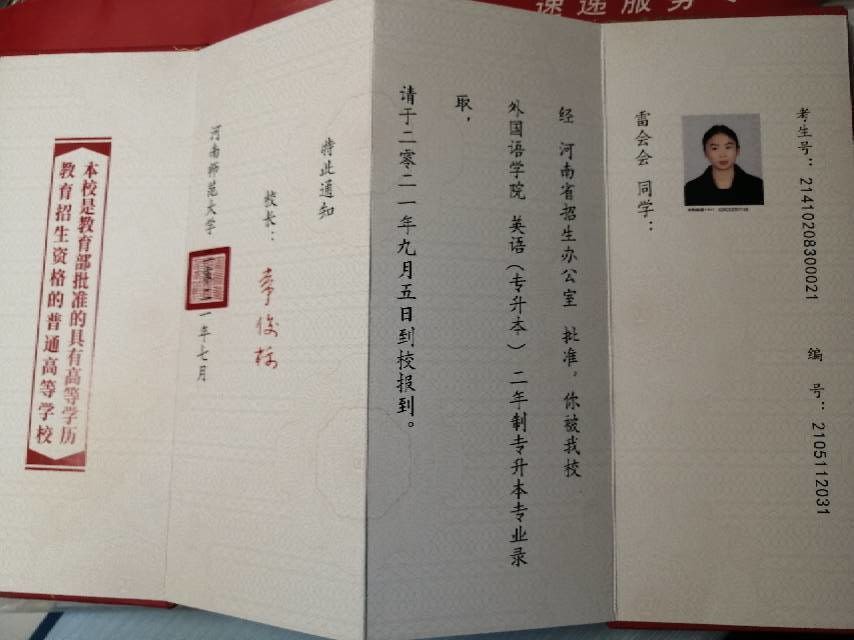 速递服务
考生号：214102083000​21
编 号：2105112031
雷会会 同学：
经 河南省招生办公室 批准，你被我校
外国语学院 英语（专升本） 二年制专升本专业录
取，
请于二零二一年九月五日到校报到。
特此通知
校长：
河南师范大学
二零二一年七月
本校是教育部批准的具有高等学历
教育招生资格的普通高等学校